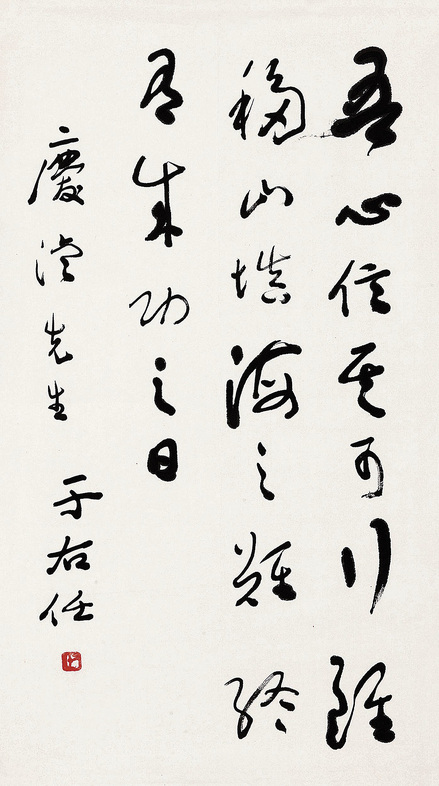 吾心信其可行雖
移山填海之難終
有成功之日
慶先生 于右任